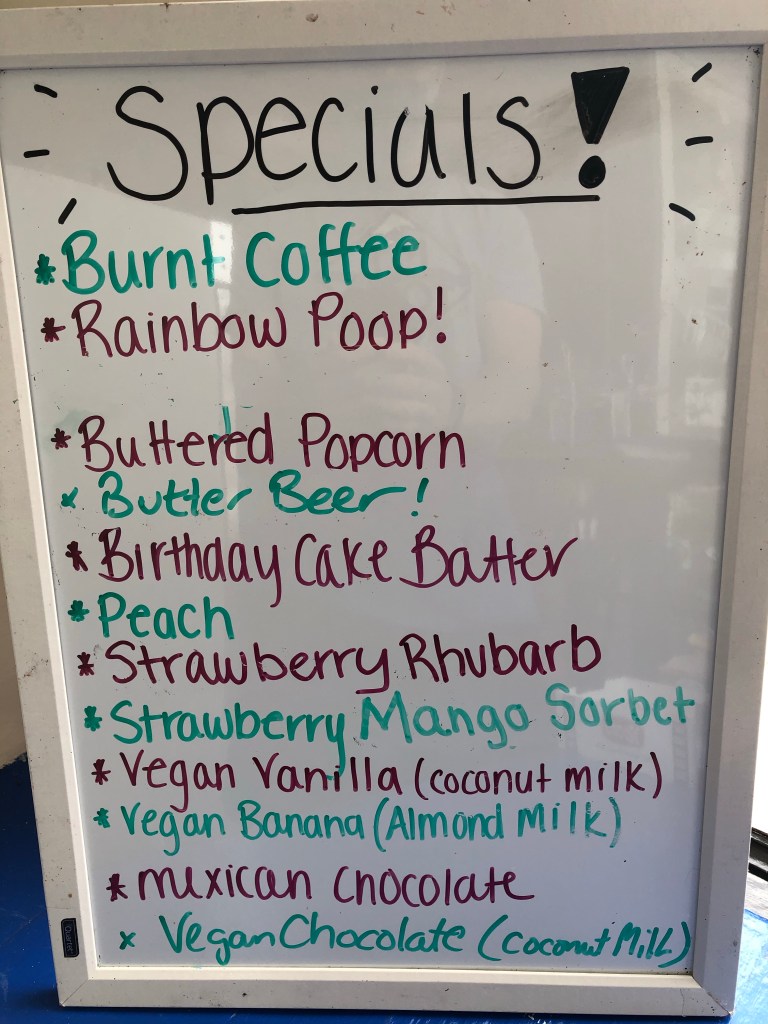 Specials!
*Burnt Coffee
*Rainbow Poop!
*Buttered Popcorn
x Butter Beer!
*Birthday Cake Batter
*Peach
*Strawberry Rhubarb
*Strawberry Mango Sorbet
*Vegan Vanilla (coconut milk)
*Vegan Banana (Almond Milk)
*mexican chocolate
x Vegan Chocolate (coconut Milk)
Quartet